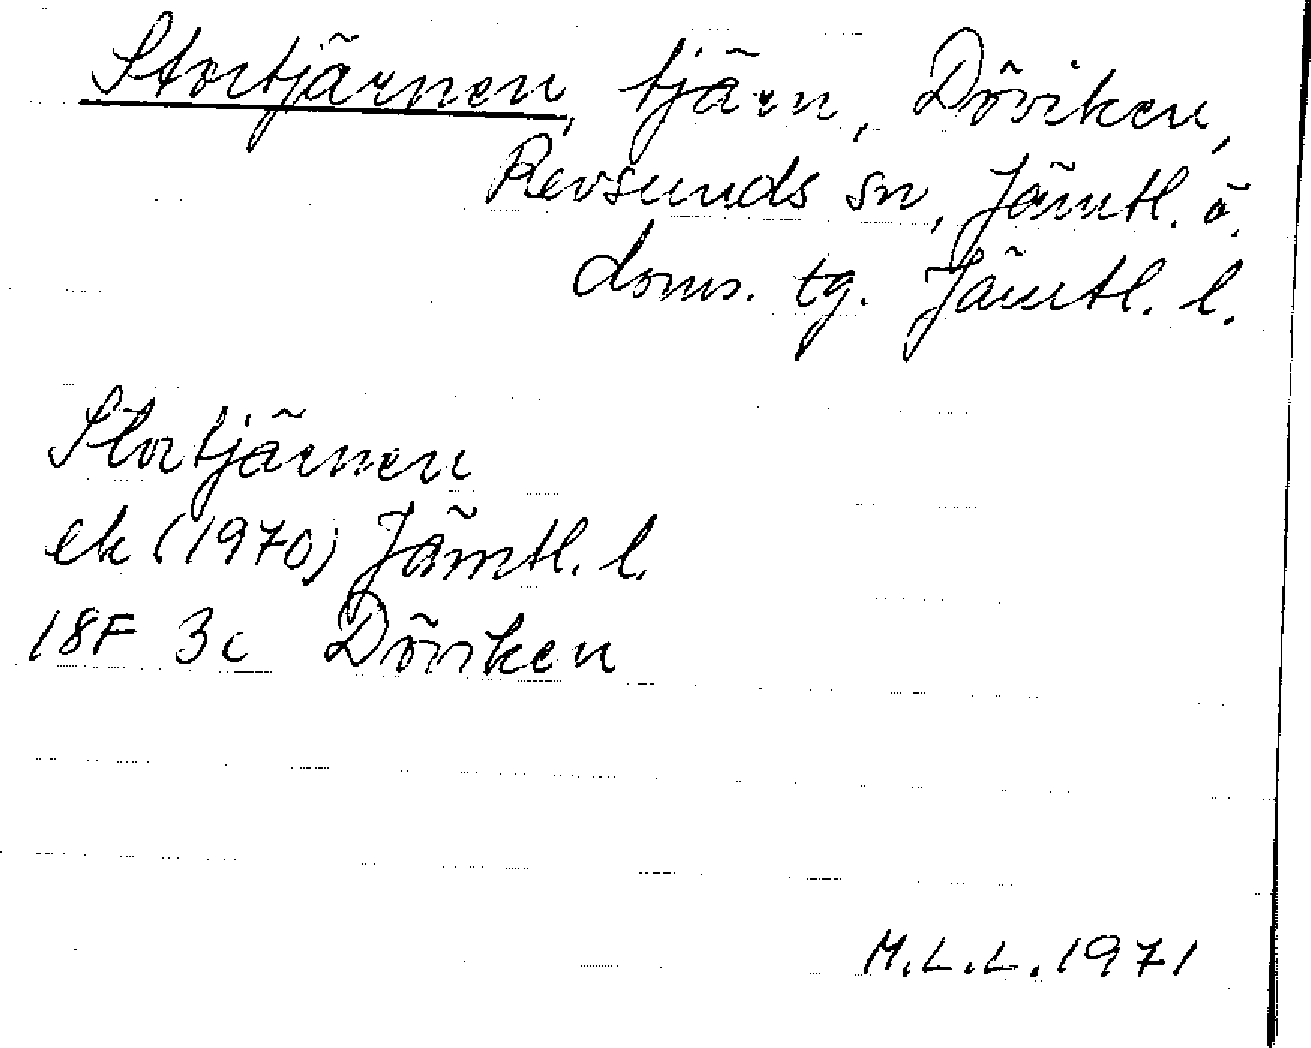 Stortjärnen, tjärn, Döviken,
Revsunds sn, Jämtl. ö.
doms. tg. Jämtl. l.
Stortjärnen
ek (1970) Jämtl. l.
18F 3c Döviken
M.L.L. 1971